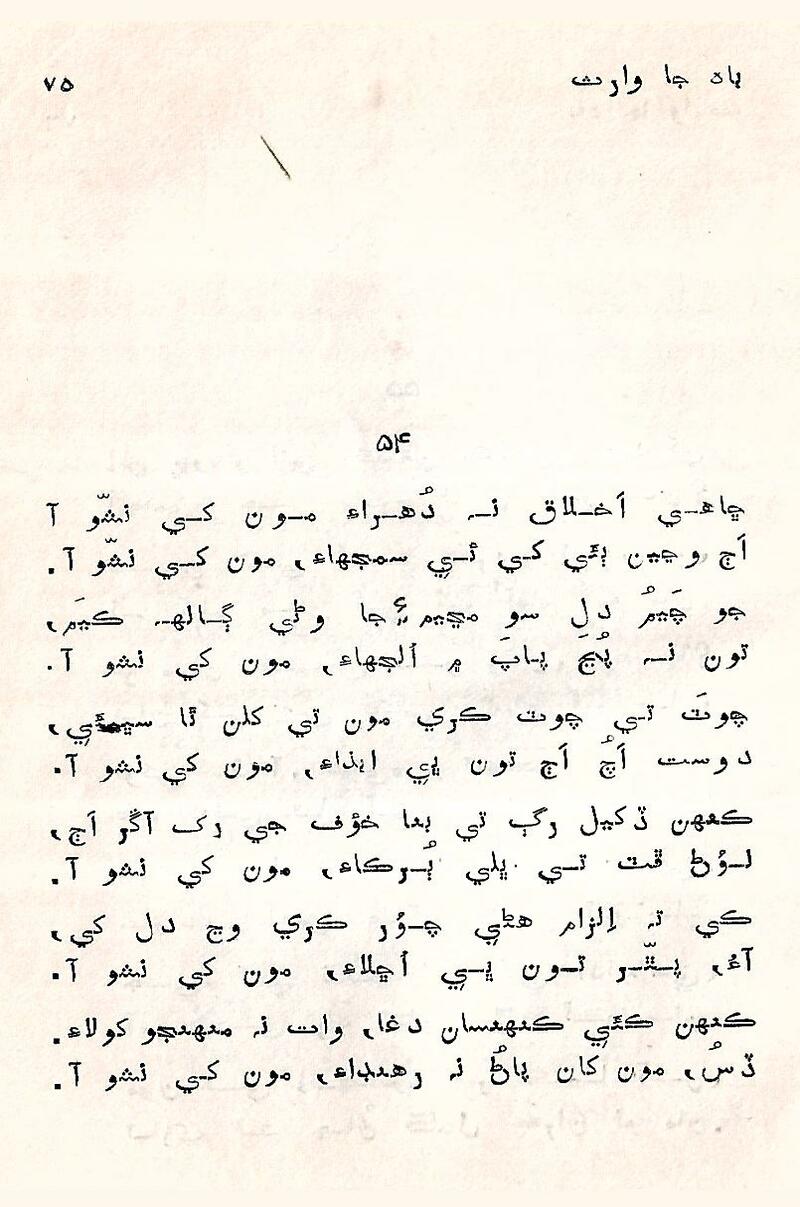 باه جا وارث
۷۵
۵۴
چاهي اَخلاق نہ دُهراءِ مون کي نشّو آ
اَڄ وڃين ٻئي کي ٿي سمجهاءِ، مون کي نشّو آ.
جو چَيمُ دل سو مڃيم ۽ جا وڻي ڳالهہ ڪيَم،
تون نہ پُڃَ پاپَ ۾ اُلجهاءِ، مون کي نشو آ.
چوٽَ تي چوٽ ڪري مون تي کلن ٿا سڀئي،
دوست اَچُ اَڄ تون ڀي ايذاءِ، مون کي نشو آ.
ڪنهن ڏکيل رڳ تي بنا خوُف جي رک آڱر اَڄ،
لوُڻ ڦٽ تي ڀلي ٻُرڪاءِ، مون کي نشو آ.
ڪي تہ اِلزام هڻي چوُر ڪري وڃ دل کي،
آءُ، پٿّر تون ڀي اُڇلاءِ، مون کي نشو آ.
ڪنهن ڪئي ڪنهنسان دغا، وات نہ منهنجو کولاءِ.
ڏسُ، مون کان پاڻُ نہ رهنڊاءِ، مون کي نشو آ.